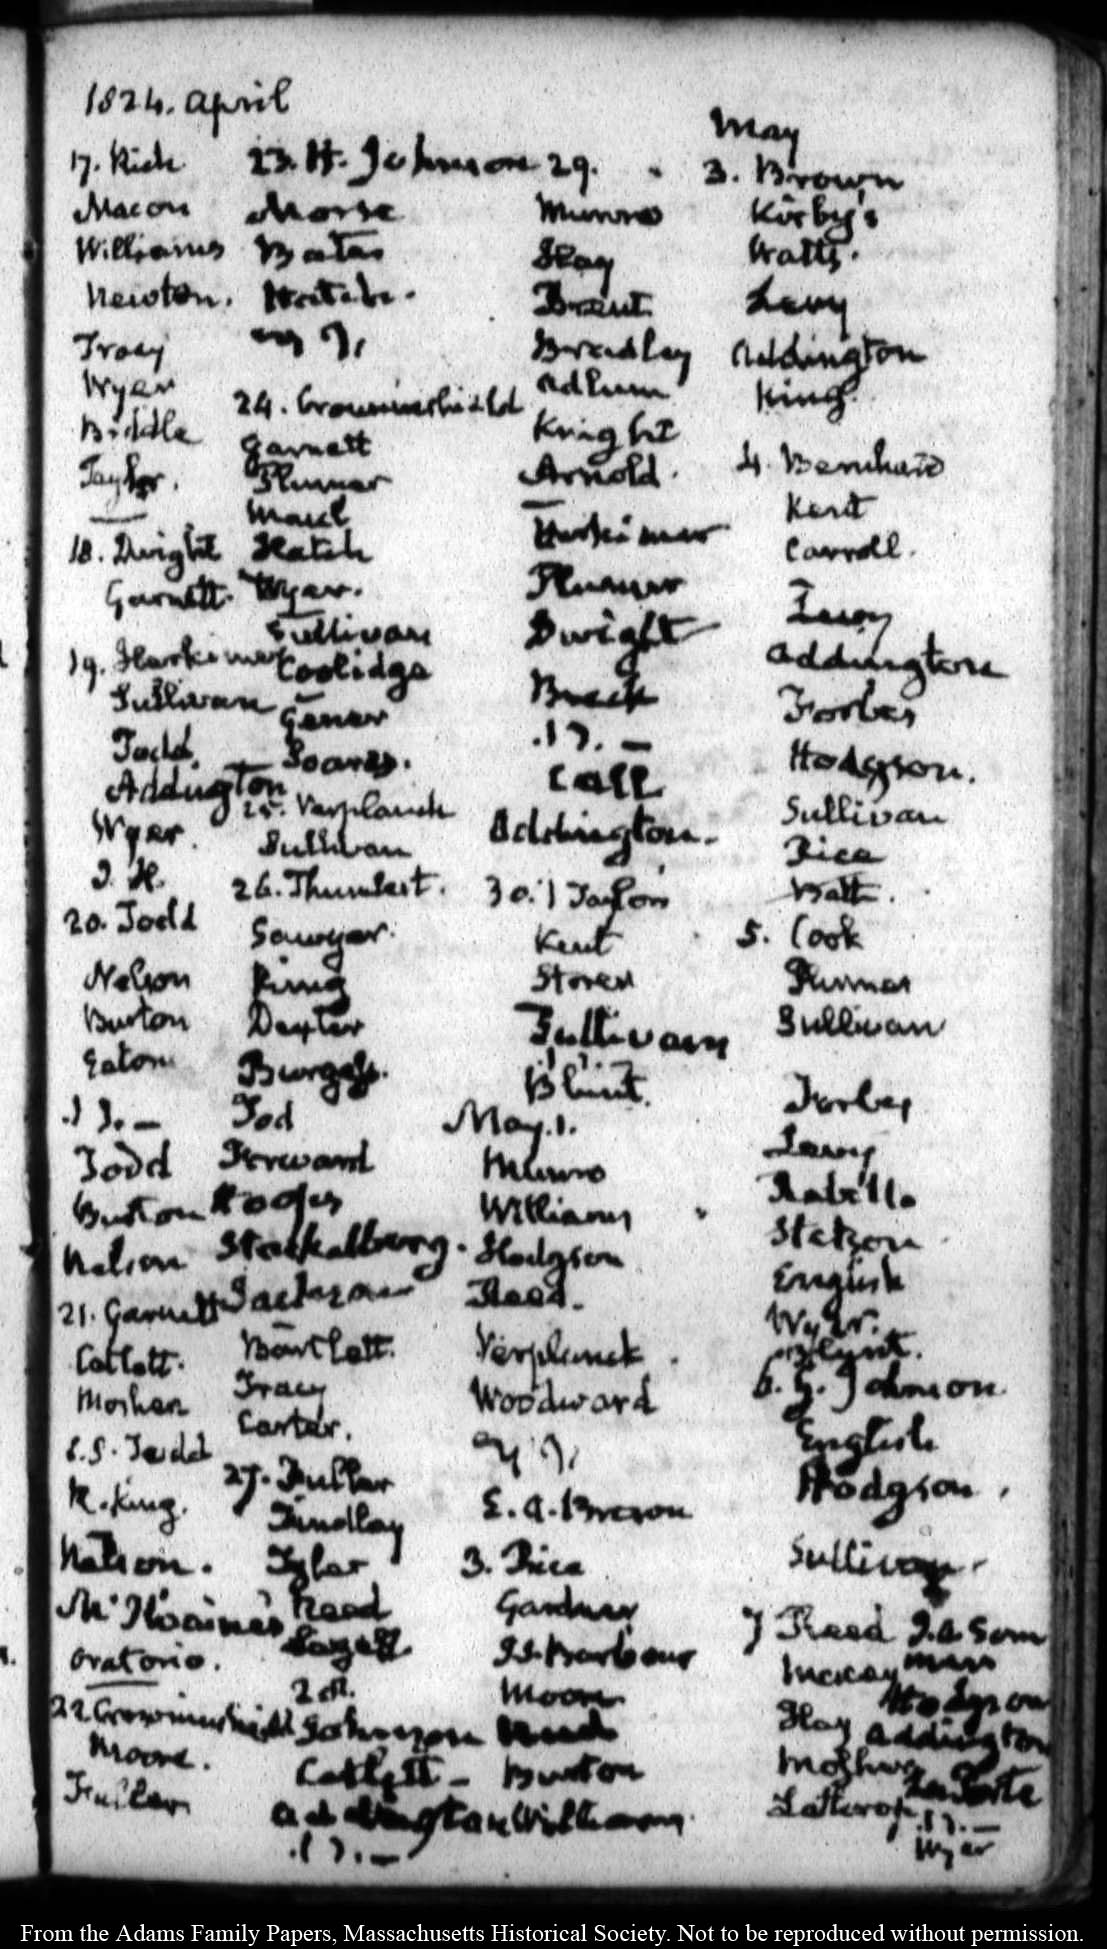 1824. April
17. Rich
Macon
Williams
Newton.
Tracy
Wyer
Biddle
Taylor.
18. Dwight
Garnett.
19. Herkimer
Sullivan
Todd.
Addington
Wyer.
J. H.
20. Todd
Nelson
Burton
Eaton
Todd
Burton
Nelson
21. Garnett
Catlett.
Mosher
C.S. Todd
R. King.
Nelson.
Oratorio.
22. Crowninshield
Moore.
Fuller
23. H. Johnson
Morse
Bates
24. Crowninshield
Garnett
Plumer
Hatch
Wyer.
Sullivan
Coolidge
Gener
Soares.
25. Verplanck
Sullivan
26.
Sawyer.
King
Dexter
Burgess.
Tod
Forward
Stackelberg.
Bartlett.
Tracy
Carter.
27. Fuller
Findlay
Tyler
Reed
Johnson
Catlett
Addington
29.
Munro
Hay
Brent
Bradley
Adlum
Knight
Arnold.
Herkimer
Plumer
Dwight
Breck
Call
Addington.
30. Taylor
Kent
Storer
Sullivan
Blunt.
May. 1.
Munro
Williams
Hodgson
Reed.
Verplanck
Woodward
E. A. Brown
3. Rice
Gardner
Moore
Burton
Williams
May
3. Brown
Kirby's
Watts.
Levy
Addington
King.
4. Bernhard
Kent
Carroll.
Levy
Addington
Forbes
Hodgson.
Sullivan
Rice
5. Cook
Plumer
Sullivan
Forbes
Levy
Rabello
Stetson
English
Wyer.
6. G. Johnson.
English
Hodgson.
Sullivan.
7 Reed
McKay
Hay
Lathrop
Hodgson
Addington
Wyer
From the Adams Family Papers, Massachusetts Historical Society. Not to be reproduced without permission.